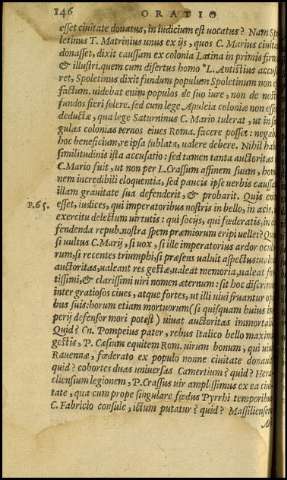 146 ORATIO
esset ciuitate donatus, in iudicium est uocatus? Nam Spo
letinus T. Matrinius unus ex ijs, quos C. Marius ciuita
donasset, dixit caussam ex colonia Latina in primis firma
& illustri. quem cum disertus homo L. Antistius accusa
ret, Spoletinus dixit fundum populum Spoletinum non esse
factum. uidebat enim populos de suo iure, non de nostro
fundos fieri solere. sed cum lege Apuleia coloniæ non essent
deductæ, qua lege Saturninus C. Mario tulerat, ut in sin
gulas colonias ternos ciues Roma. facere posset: negabat
hoc beneficium, re ipsa sublata, ualere debere. Nihil habet
similitudinis ista accusatio: sed tamen tanta auctoritas in
C. Mario fuit, ut non per L. Crassum affinem suum, homi
nem incredibili eloquentia, sed paucis ipse uerbis caussam
illam grauitate sua defenderit, & probarit. Quis enim
P. 65. esset, iudices, qui imperatoribus nostris in bello, in acie, in
exercitu delectum uirtutis: qui socijs, qui fœderatis, in de
fendenda repub. nostra spem præmiorum eripi uellet? Quod
si uultus C. Marij, si uox, si ille imperatorius ardor oculo
rum, si recentes triumphi, si præsens ualuit aspectus: ualeat
auctoritas, ualeant res gestæ, ualeat memoria, ualeat for
tissimi, & clarissimi uiri nomen æternum: sit hoc discrimen
inter gratiosos ciues, atque fortes, ut illi uiui fruantur opi
bus suis: horum etiam mortuorum (si quisquam huius im
perij defensor mori potest) uiuat auctoritas immortalis.
Quid? Cn. Pompeius pater, rebus Italico bello maximis
gestis, P. Cæsum equitem Rom. uirum bonum, qui uiuit,
Rauennæ, fœderato ex populo nonne ciuitate donauit?
quid? cohortes duas uniuersas Camertium? quid? Hera
cliensium legionem, P. Crassus uir amplissimus ex ea ciui
tate, qua cum prope singulare fœdus Pyrrhi temporibus
C. Fabricio consule, ictum putatur? quid? Massiliensem